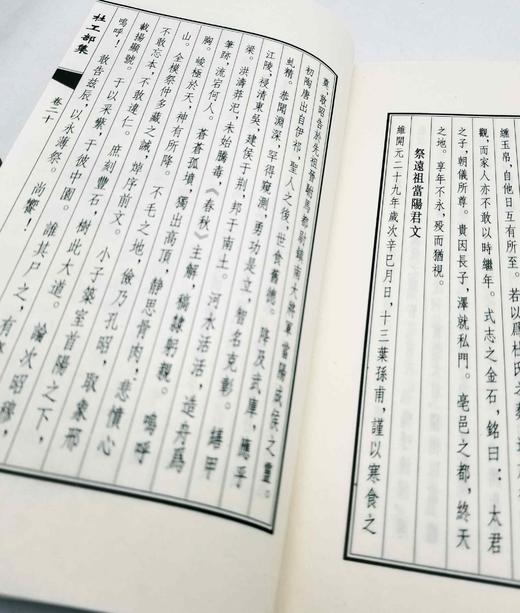 纏玉帛，自他日互有所至。若以盧杜氏之
觀，而家人亦不敢以時繼年。式志之金石，銘曰：太君
之子，朝儀所尊。貴因長子，澤就私門。亳邑之都，終天
之地。享年不永，殁而猶視。
祭遠祖當陽君文
維開元二十九年歲次辛巳月日，十三葉孫甫，謹以寒食之
奠，敢昭告於先祖晉駙馬都尉鎮南大將軍當陽成侯之靈。
初陶唐出自伊祁，聖人之後，世食舊德。降及武庫，應乎
虬精。恭聞淵深，罕得窺測，勇功是立，智名克彰。繕甲
江陵，祲清東吳，建侯于荆，邦于南土。河水活活，造舟爲
梁。洪濤莽汜，未始騰毒《春秋》主解，稿隸躬親。嗚呼
筆跡，流宕何人。蒼蒼孤墳，獨出高頂，静思骨肉，悲憤心
胸。峻極於天，神有所降。不毛之地，儉乃孔昭，取象邢
山。全模祭仲多藏之誡，焯序前文。小子築室首陽之下，
不敢忘本，不敢違仁。庶刻豐石，樹此大道。論次昭穆，
載揚顯號。于以采蘩，于彼中園。誰其尸之，有
嗚呼！敢告兹辰，以永薄祭。尚饗！
杜工部集
卷二十